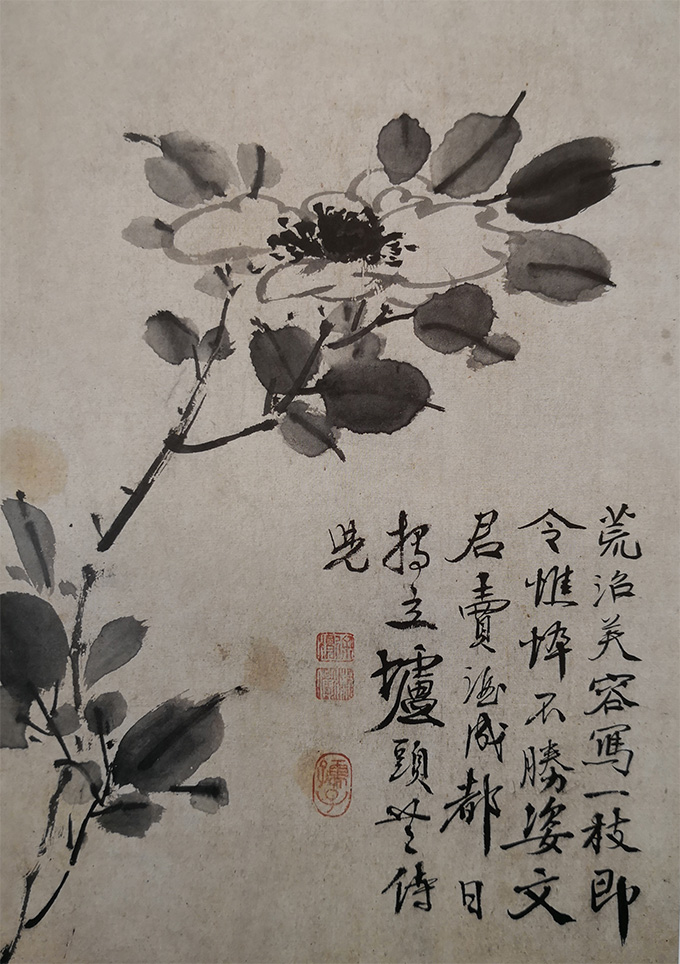 荒沼芙容寫一枝即
令憔悴不勝姿文
君賣酒成都日
獨立壚頭無侍
兒